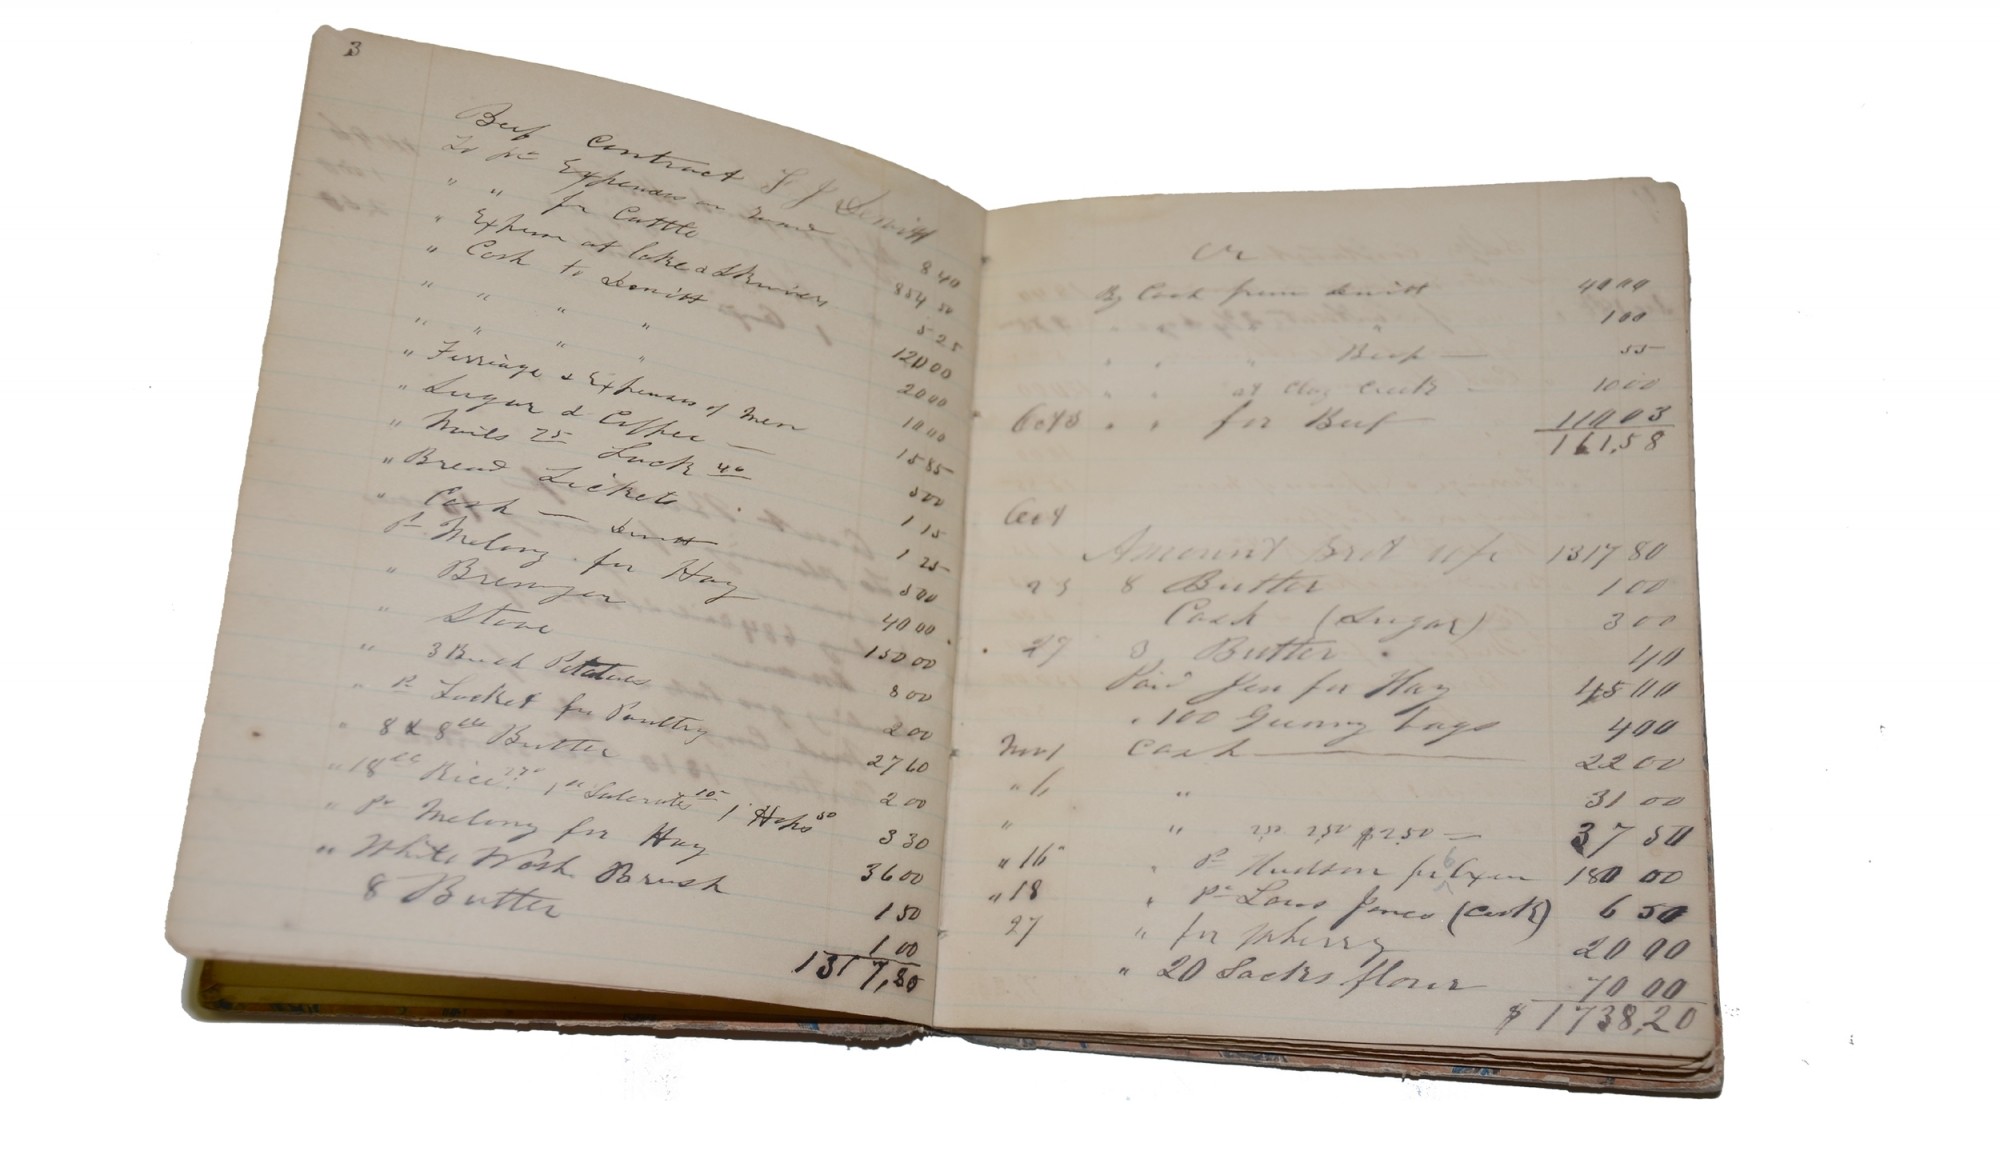 3
Beef Contract F J Dewitt
To pd Expenses on Road 8 40
" " for Cattle 854 50
" Expense at Lake & 5 25
" Cash to Dewitt 120 00
" " " " 20 00
" " " " 10 00
" Ferriage & Expenses of Men 15 85
" Sugar & Coffee — 5 00
" Nails 75 Lock 40 1 15
" Bread Tickets 1 25
" Cash — Dewitt 5 00
Pd Melony for Hay 40 00
" 150 00
" Stove 8 00
" 3 Bush Potatoes 2 00
" Pd for Poultry 27 60
" 8 & 8 Butter 2 00
" 18 Rice 1 Salerates 10 1 Hops 50 3 30
" Pd Melony for Hay 36 00
" White Wash Brush 1 50
8 Butter 1 00
1317,80
Cr
By Cash from Dewitt 40 00
" 1 00
" " " Beef — 55
" " at Clay Creek - 10 00
Oct 8 " " for Beef 110 03
161,58
Oct
Amount Brot 1317 80
23 8 Butter 1 00
Cash (Sugar) 3 00
27 3 Butter 40
Paid for Hay 45 00
" 100 Gunny bags 4 00
Nov 1 Cash 22 00
" 6 " 31 00
" " 250 — 37 50
" 16 " Pd Hudson for 6 Oxen 180 00
" 18 " Pd (Cook) 6 50
27 " for Wherry 20 00
" 20 Sacks flour 70 00
$1738,20